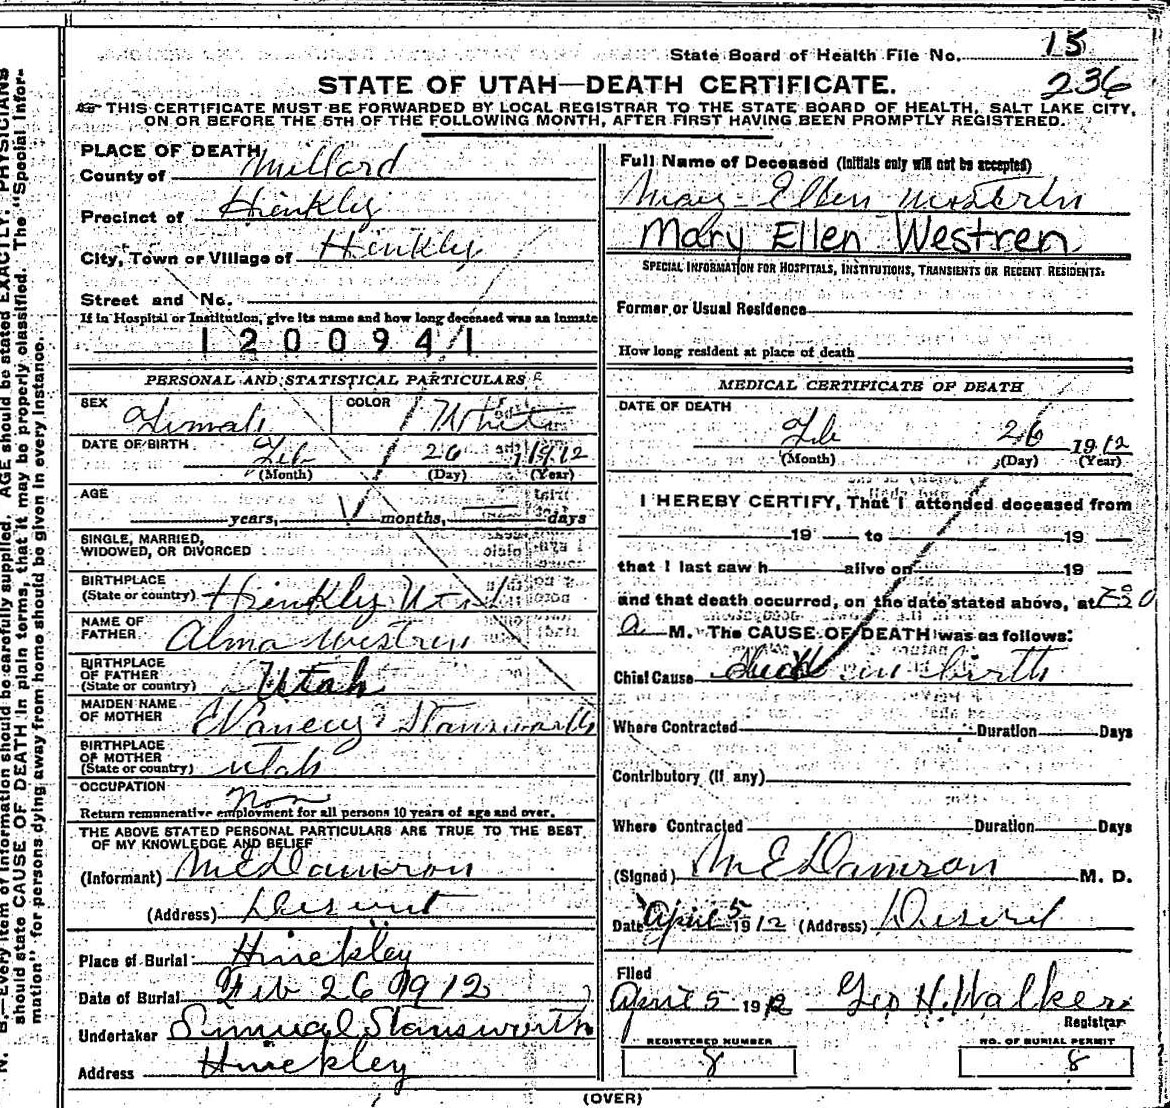 State Board of Health File No. 15
236
STATE OF UTAH—DEATH CERTIFICATE.
THIS CERTIFICATE MUST BE FORWARDED BY LOCAL REGISTRAR TO THE STATE BOARD OF HEALTH, SALT LAKE CITY,
ON OR BEFORE THE 5TH OF THE FOLLOWING MONTH, AFTER FIRST HAVING BEEN PROMPTLY REGISTERED.
PLACE OF DEATH
County of Millard
Precinct of Hinkly
City, Town or Village of Hinkly
Street and No.
If in Hospital or Institution, give its name and how long deceased was an inmate
1200941
PERSONAL AND STATISTICAL PARTICULARS
SEX Female COLOR White
DATE OF BIRTH Feb 26 1912
(Month) (Day) (Year)
AGE
years, months, days
SINGLE, MARRIED,
WIDOWED, OR DIVORCED
BIRTHPLACE
(State or country) Hinkly Utah
NAME OF
FATHER Alma Westren
BIRTHPLACE
OF FATHER
(State or country) Utah
MAIDEN NAME
OF MOTHER Nancy Stansworth
BIRTHPLACE
OF MOTHER
(State or country) Utah
OCCUPATION
Non
Return remunerative employment for all persons 10 years of age and over.
THE ABOVE STATED PERSONAL PARTICULARS ARE TRUE TO THE BEST
OF MY KNOWLEDGE AND BELIEF
(Informant) M E Damron
(Address) Deseret
Place of Burial Hinckley
Date of Burial Feb 26 1912
Undertaker Simual Stansworth
Address Hinckley
Full Name of Deceased (Initials only will not be accepted)
Mary Ellen Westren
Mary Ellen Westren
SPECIAL INFORMATION FOR HOSPITALS, INSTITUTIONS, TRANSIENTS OR RECENT RESIDENTS:
Former or Usual Residence
How long resident at place of death
MEDICAL CERTIFICATE OF DEATH
DATE OF DEATH
Feb 26 1912
(Month) (Day) (Year)
I HEREBY CERTIFY, That I attended deceased from
19 to 19
that I last saw h alive on 19
and that death occurred, on the date stated above, at 7-30
a M. The CAUSE OF DEATH was as follows:
Chief Cause in birth
Where Contracted Duration Days
Contributory (if any)
Where Contracted Duration Days
(Signed) M E Damron M. D.
Date April 5 1912 (Address) Deseret
Filed
April 5 1912 Geo H. Walker
Registrar
REGISTERED NUMBER
8
NO. OF BURIAL PERMIT
8
(OVER)
N. B.—Every item of information should be carefully supplied. AGE should be stated EXACTLY. PHYSICIANS
should state CAUSE OF DEATH in plain terms, that it may be properly classified. The "Special Infor-
mation" for persons dying away from home should be given in every instance.